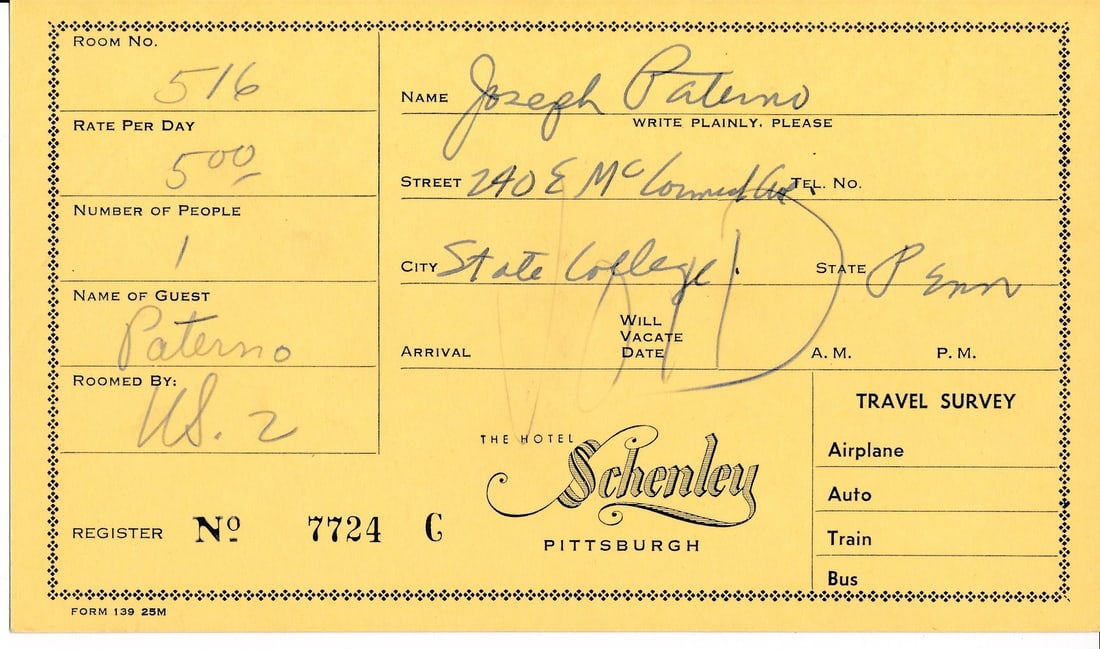 ROOM NO.
516
RATE PER DAY
5 00
NUMBER OF PEOPLE
1
NAME OF GUEST
Paterno
ROOMED BY:
US. 2
NAME Joseph Paterno
WRITE PLAINLY, PLEASE
STREET 240 E McCormick Av. TEL. NO.
CITY State College. STATE Penn
ARRIVAL WILL VACATE DATE A. M. P. M.
VOID
REGISTER Nº 7724 C
THE HOTEL
Schenley
PITTSBURGH
TRAVEL SURVEY
Airplane
Auto
Train
Bus
FORM 139 25M